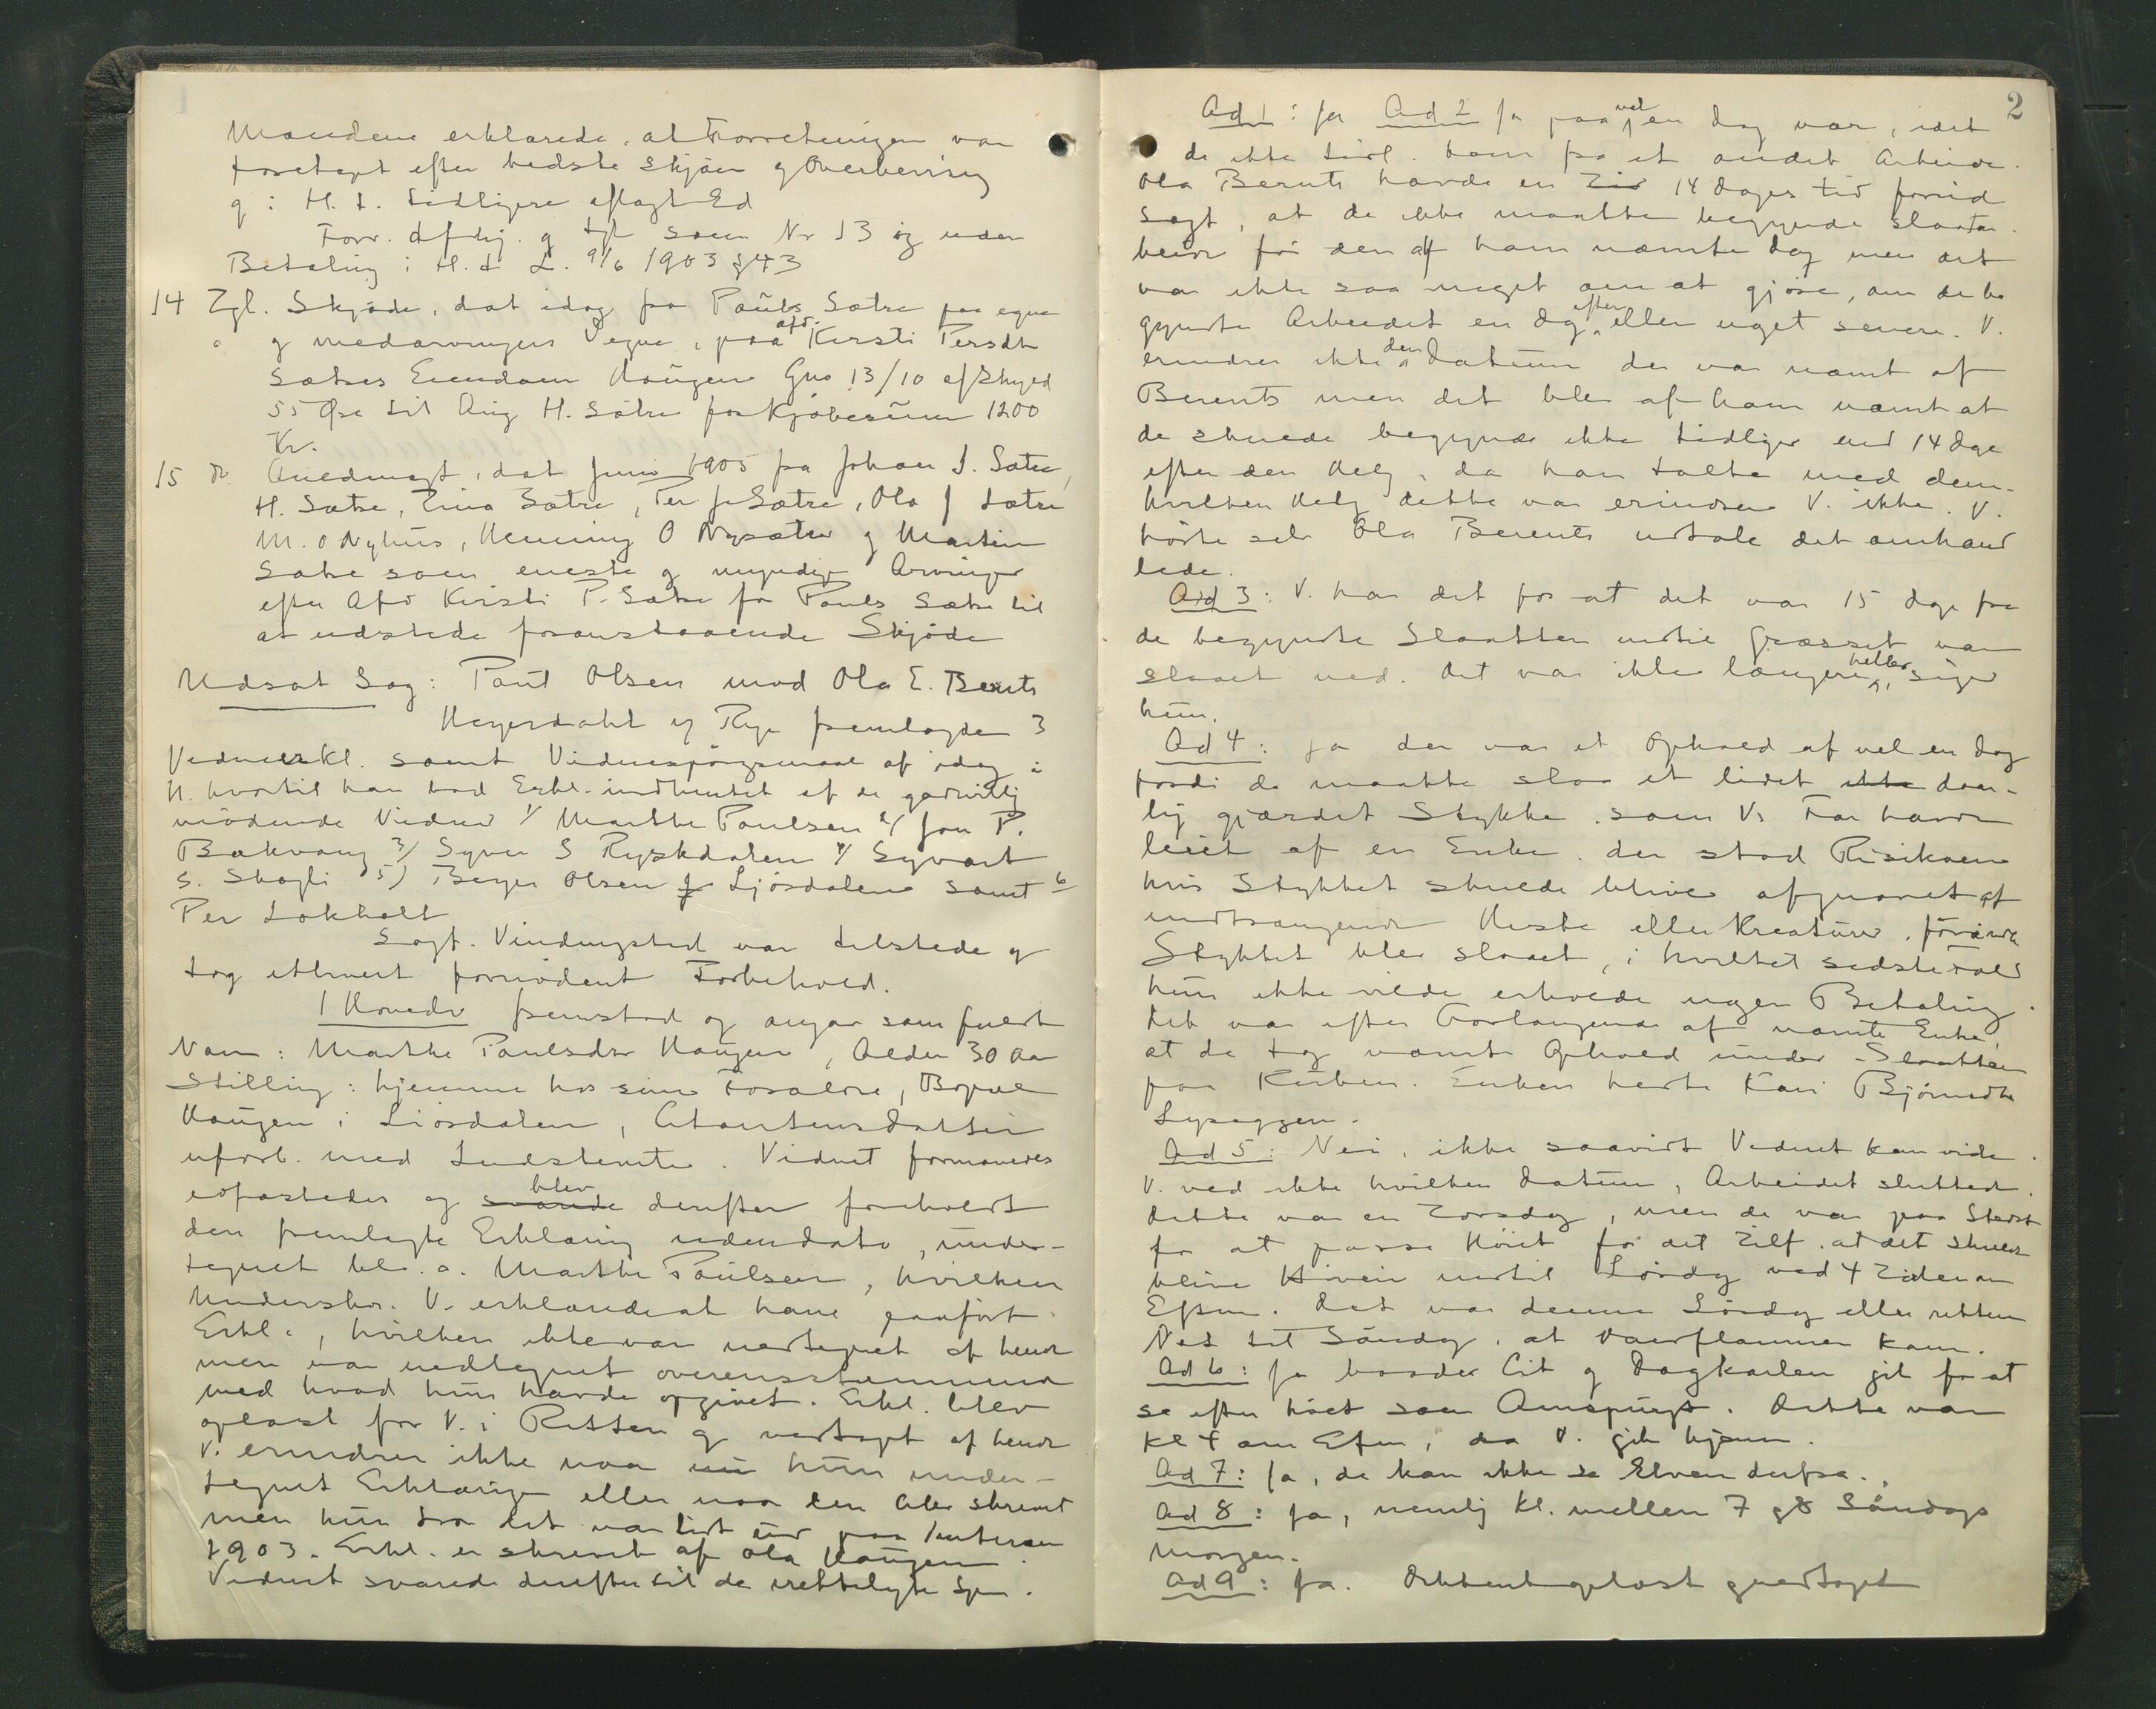 Mændene erklærede, at Forretningen var
foretaget efter bedste Skjøn og Overbevisning
g: H. t. tidligere aflagt Ed
Forr. afhj. og tgl som Nr 13 og uden
Betaling i H. t L. 9/6 1903 § 43
14 Tgl. Skjøde, dat idag fra Pauls Sætre paa egne
og medarvingers Vegne, paa afd. Kersti Persdtr
Sætres Eiendom Haugen Gno 13/10 af Skyld
55 Øre til Aug H. Sætre for Kjøbesum 1200
Kr.
15 do. Fuldmagt, dat Juni 1905 fra Johan J. Sætre,
H. Sætre, Trina Sætre, Per J. Sætre, Ola J Sætre
M. O Nyhus, Henning O Nysæter og Martin
Sætre som eneste og myndige Arvinger
efter Afd Kersti P. Sætre for Pauls Sætre til
at udstede foranstaaende Skjøde
Udsat Sag: Paul Olsen mod Ola E. Bernts
Heyerdahl og Rye fremlagde 3
Vidneerkl. samt Vidnespørgsmaal af idag i
H. hvortil han bad Erkl. indhentet af de godvillig
mødende Vidner 1/ Marthe Paulsen 2/ Jon P.
Bækvang 3/ Syver S Ryskdalen 4/ Syvart
S. Skogli 5) Berger Olsen Ljøsdalen samt 6
Per Løkholt
Sagf. Vindingstad var tilstede og
tog ethvert fornødent Forbehold.
1 Hovedv fremstod og angav som fuldt
Navn: Marthe Paulsdtr Haugen, Alder 30 Aar
Stilling: hjemme hos sine Forældre, Bopæl
Haugen i Liøsdalen, Citantens Datter
uforb. med Indstevnte. Vidnet formanedes
edfæstedes og svarede blev derefter foreholdt
den fremlagte Erklæring uden dato, under-
tegnet bl. a. Marthe Paulsen, hvilken
Underskr. V. erklærede at have paaført
Erkl., hvilken ikke var nedtegnet af hende
men var nedtegnet overensstemmende
med hvad hun havde opgivet. Erkl. blev
oplæst for V. i Retten og vedtaget af hende
V. erindrer ikke naar hun under-
tegnet Erklæringen eller naar den blev skrevet
men hun tror det var lidt ud paa Vinteren
1903. Erkl. er skrevet af Ola Haugen
Vidnet svarede derefter til de irettelagte Spm.
2
Ad 1: Ja Ad 2 Ja paa vel en Dag nær, idet
de ikke tidl. kom fra et andet Arbeide.
Ola Berents havde en Tid 14 Dages Tid forud
sagt, at de ikke maatte begynde Slaatar-
beide før den af ham nævnte Dag men det
var ikke saa meget om at gjøre, om de be
gyndte Arbeidet en Dag efter eller noget senere. V.
erindrer ikke den Datum der var nævnt af
Berents men det blev af ham nævnt at
de skulde begynde ikke tidliger end 14 Dage
efter den Helg, da han talte med dem.
hvilken Helg dette var erindrer V. ikke. V.
hørte selv Ola Berents udtale det omhand
lede.
Ad 3: V. har det for at det var 15 Dage fra
de begyndte Slaatten indtil Græsset var
slaaet ned. Det var ikke længere heller, siger
hun.
Ad 4: Ja der var et Ophold af vel en Dag
fordi de maatte slaa et lidet ikke daar-
lig gjærdet Stykke, som Vs Far havde
leiet af en Enke, der stod Risikoen
hvis Stykket skulde blive afgnavet af
indtrængende Heste eller Kreaturer, førend
Stykket blev slaaet, i hvilket sidste Fald
hun ikke vilde erholde nogen Betaling.
Det var efter Forlangende af nævnte Enke,
at de tog nævnte Ophold under Slaatten
paa Kurben. Enken hedte Kari Bjørnsdtr
Lyseggen.
Ad 5: Nei, ikke saavidt Vidnet kan vide.
V. ved ikke hvilken Datum, Arbeidet sluttede.
Dette var en Torsdag, men de var paa Stedet
for at passe Høiet for det Tilf. at det skulde
blive Høveir indtil Lørdag ved 4 Tiden om
Efterm. Det var denne Lørdag eller retten
Nat til Søndag, at Vaarflommen kom.
Ad 6: Ja baade Cit og Dagkarlen gik for at
se efter høiet som Omspurgt. Dette var
Kl 4 om Eftm, da V. gik hjem.
Ad 7: Ja, de kan ikke se Elven derfra.
Ad 8: Ja, nemlig Kl. mellem 7 og 8 Søndags
Morgen.
Ad 9: Ja. Dikteret oplæst og vedtaget